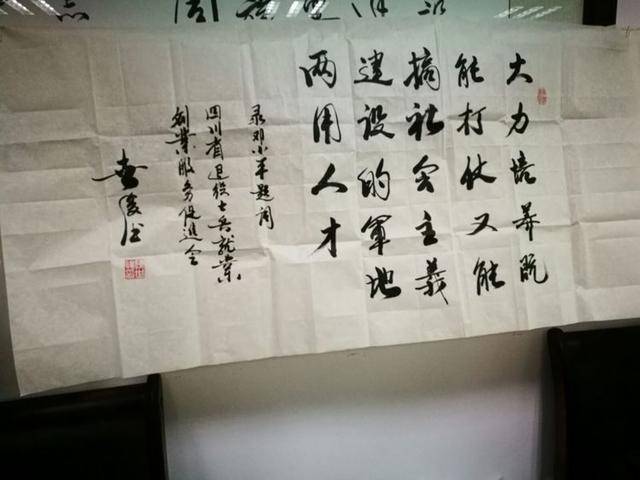 大力培养既
能打仗又能
搞社会主义
建设的军地
两用人才
录邓小平题词
四川省退役士兵就业
创业服务促进会